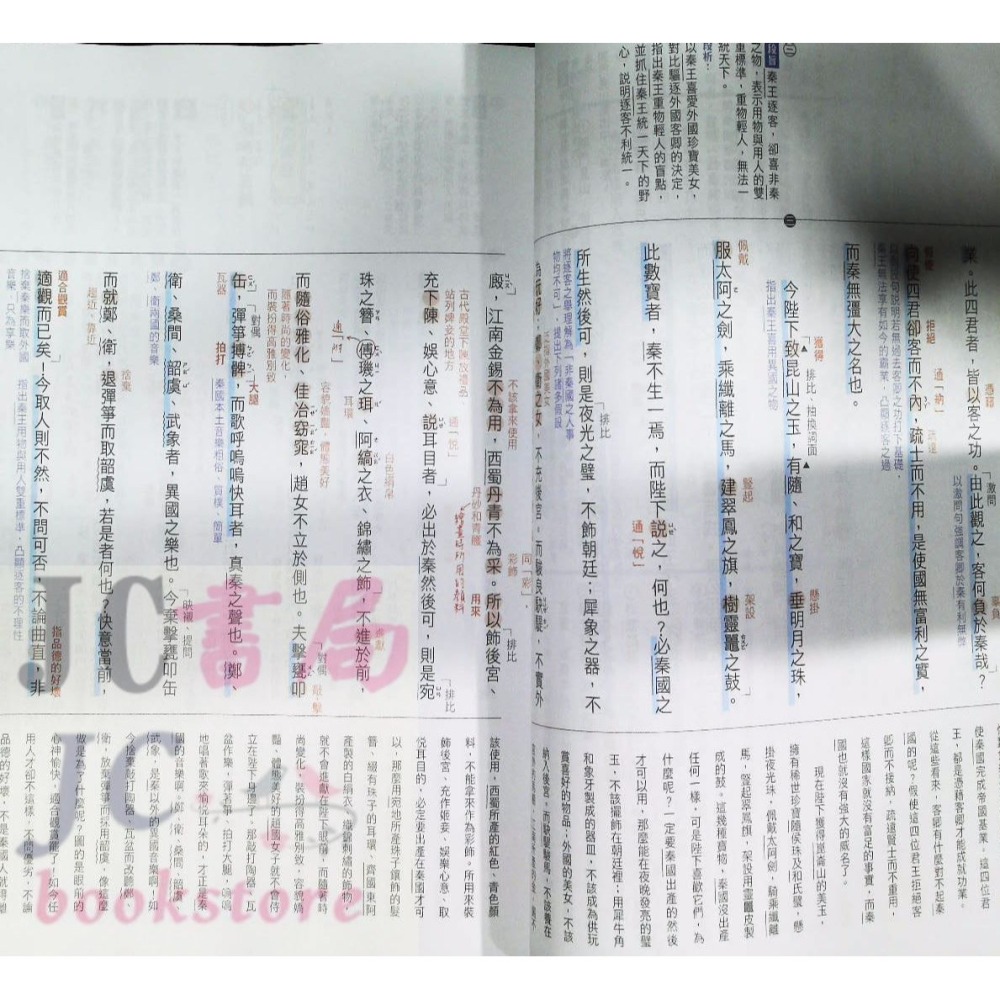 段旨
秦王逐客，卻喜非秦
之物，表示用物與用人的雙
重標準，重物輕人，無法一
統天下。
段析：
以秦王喜愛外國珍寶美女，
對比驅逐外國客卿的決定，
指出秦王重物輕人的盲點，
並抓住秦王統一天下的野
心，說明逐客不利統一。
業。此四君者，皆以客之功。由此觀之，客何負於秦哉？
向使四君卻客而不內，疏士而不用，是使國無富利之實，
而秦無彊大之名也。
三
今陛下致昆山之玉，有隨、和之寶，垂明月之珠，
服太阿之劍，乘纖離之馬，建翠鳳之旗，樹靈鼉之鼓。
此數寶者，秦不生一焉，而陛下說之，何也？必秦國之
所生然後可，則是夜光之璧，不飾朝廷；犀象之器，不
為玩好；鄭、衛之女，不充後宮，而駿良駃騠，不實外
廄，江南金錫不為用，西蜀丹青不為采。所以飾後宮、
充下陳、娛心意、說耳目者，必出於秦然後可，則是宛
珠之簪、傅璣之珥、阿縞之衣、錦繡之飾，不進於前，
而隨俗雅化、佳冶窈窕，趙女不立於側也。夫擊甕叩
缶，彈箏搏髀，而歌呼嗚嗚快耳者，真秦之聲也。鄭、
衛、桑間、韶虞、武象者，異國之樂也。今棄擊甕叩缶
而就鄭、衛，退彈箏而取韶虞，若是者何也？快意當前，
適觀而已矣！今取人則不然，不問可否，不論曲直，非
憑藉
「激問
辜負
以激問句強調客卿於秦有利無害
拒絕
通「納」
疏遠
獲得
▲排比、抽換詞面▲
懸掛
指出秦王喜用異國之物
佩戴
豎起
架設
通「悅」
「排比
將逐客之舉理解為「非秦國之人事
物均不可」，提出下列諸多假設
不該拿來使用
向「彩」，
彩飾
丹砂和青雘
繪畫時所用的顏料
用來
「排比
古代殿堂下陳放禮品、
站列婢妾的地方
通「悅」
「排比
耳環
白色絹帛
進獻
隨著時尚的變化，
而裝扮得高雅別致
容貌嬌豔，體態美好
「對偶
敲擊
瓦器
「對偶
拍打
大腿
秦國本土音樂粗俗、質樸、簡單
鄭、衛兩國的音樂
「映襯、提問
趨近、靠近
捨棄
適合觀賞
捨棄秦樂而取外國
音樂，只為享樂
指出秦王用物與用人雙重標準，凸顯逐客的不理性
指品德的好壞
使秦國完成帝國基業。這四位君
王，都是憑藉客卿才能成就功業。
從這些看來，客卿有什麼對不起秦
國的呢？假使這四位君王拒絕客
卿而不接納，疏遠賢士而不重用，
這樣國家就沒有富足的事實，而秦
國也就沒有強大的威名了。
現在陛下獲得崑崙山的美玉，
擁有稀世珍寶隨侯珠及和氏璧，懸
掛夜光珠，佩戴太阿劍，騎乘纖離
馬，豎起翠鳳旗，架設用靈鼉皮製
成的鼓。這幾種寶物，秦國沒出產
任何一樣，可是陛下喜歡它們，為
什麼呢？一定要秦國出產的然後
才可以用，那麼能在夜晚發亮的璧
玉，不該擺飾在朝廷裡；用犀牛角
和象牙製成的器皿，不該成為供玩
賞喜好的物品；外國的美女，不該
納入後宮，而駿馬，不該養在
該使用，西蜀所產的紅色、青色顏
料，不能拿來作為彩飾。所用來裝
飾後宮、充作姬妾、娛樂心意、取
悅耳目的，必定要出產在秦國才可
以，那麼用宛地所產珠子鑲飾的髮
簪、綴有珠子的耳環、齊國東阿
產製的白絹衣、織錦刺繡的飾物，
就不會進獻在陛下眼前，而隨著時
尚變化，裝扮得高雅別致，容貌嬌
豔、體態美好的趙國女子就不會侍
立在陛下身邊了。那敲打陶器、瓦
盆作樂，彈著箏、拍打大腿，嗚嗚
地唱著歌來愉悅耳朵的，才正是秦
國的音樂啊。鄭、衛、桑間、韶虞、
武象，是秦以外的異國音樂啊。如
今捨棄敲打陶器、瓦盆而改聽鄭、
衛，放棄彈箏而採用韶虞，像這麼
做是為了什麼呢？圖的是眼前的
心神愉快，適合觀賞罷了！如今任
用人才卻不這樣，不問優劣，不論
品德的好壞，不是秦國人就得離
JC書局
JC
bookstore